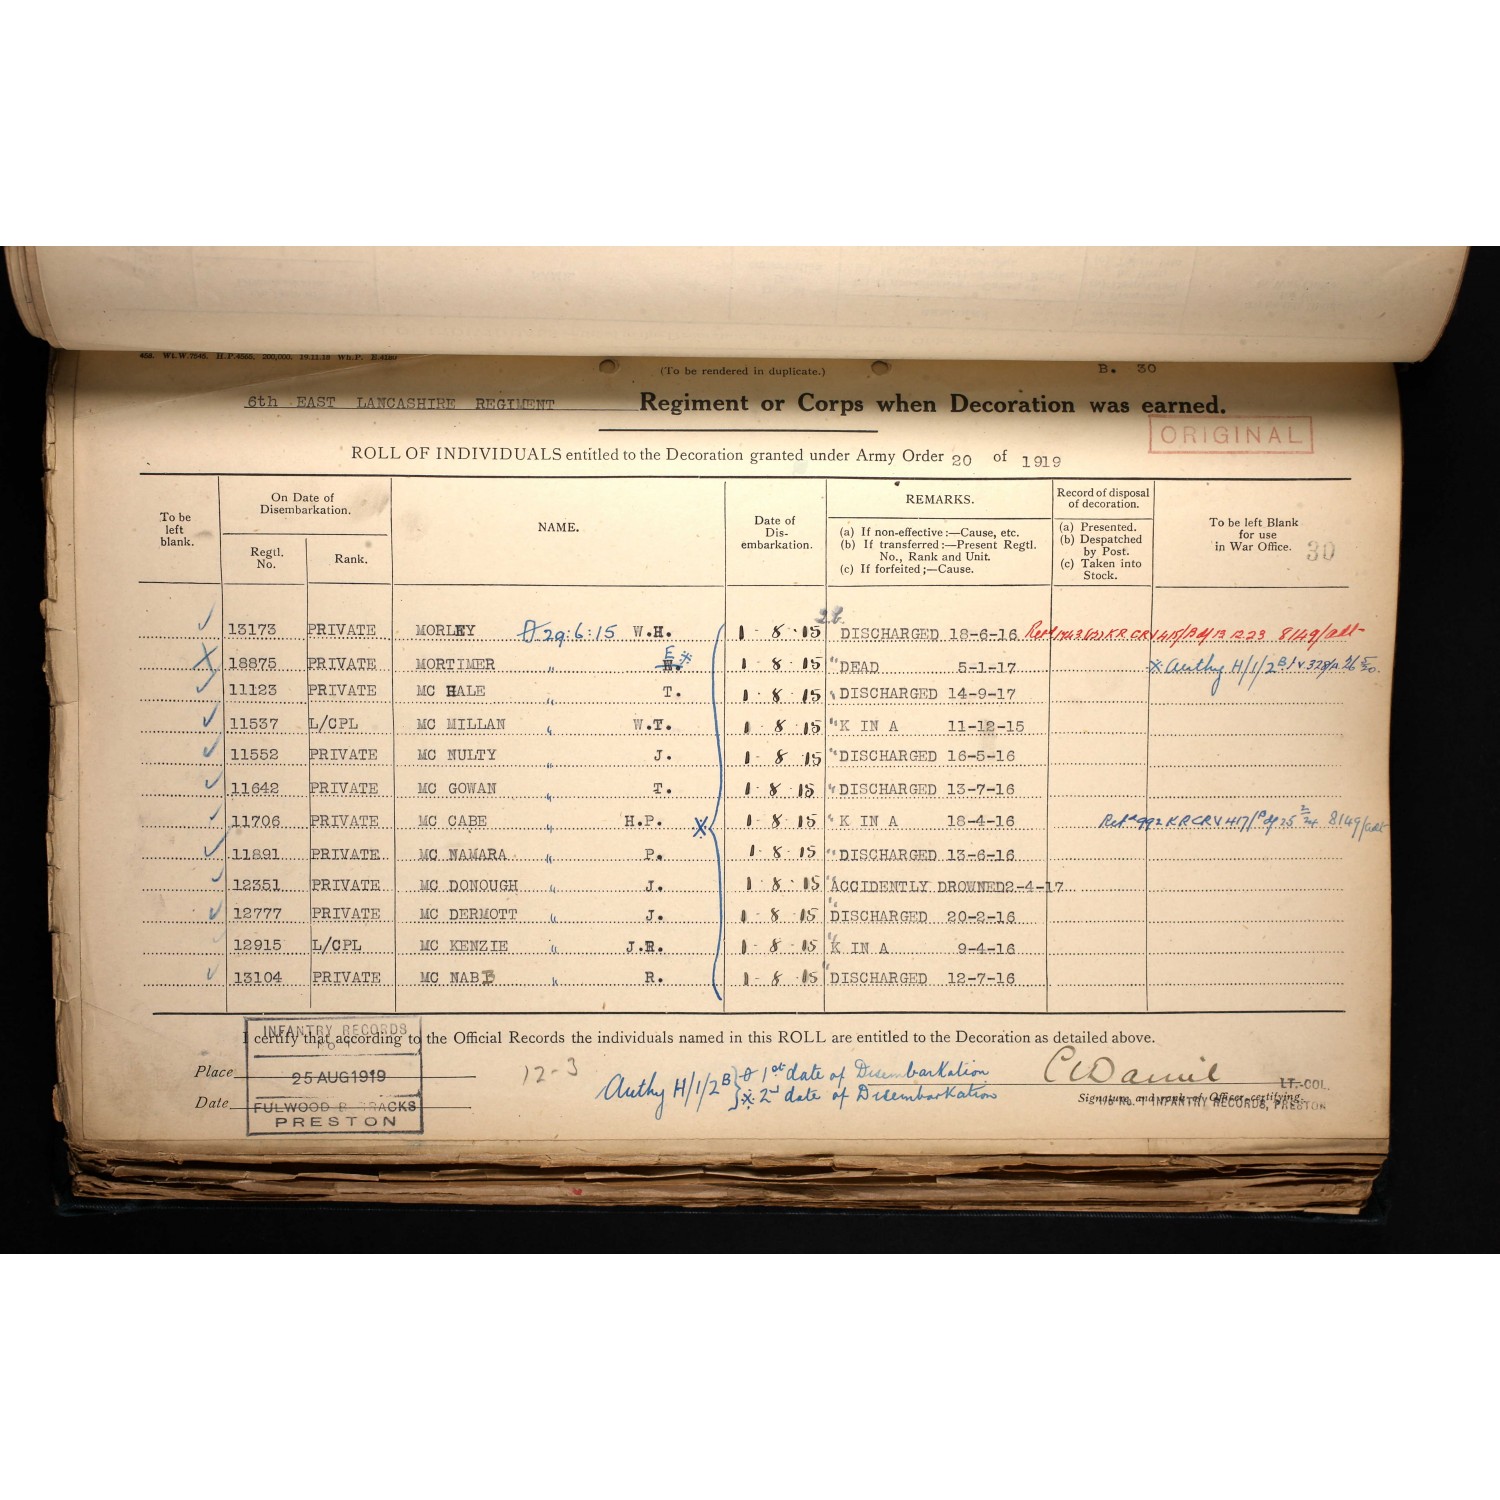 456. Wt.W.7545. H.P.4555. 200,000. 19.11.18 Wh.P.
(To be rendered in duplicate.)
B. 30
6th EAST LANCASHIRE REGIMENT Regiment or Corps when Decoration was earned.
ORIGINAL
ROLL OF INDIVIDUALS entitled to the Decoration granted under Army Order 20 of 1919
To be left blank.
On Date of Disembarkation.
Regtl. No.
Rank.
NAME.
Date of Dis-embarkation.
REMARKS.
(a) If non-effective:—Cause, etc.
(b) If transferred:—Present Regtl. No., Rank and Unit.
(c) If forfeited;—Cause.
Record of disposal of decoration.
(a) Presented.
(b) Despatched by Post.
(c) Taken into Stock.
To be left Blank for use in War Office. 30
13173 PRIVATE MORLEY 29:6:15 W.H. 1 - 8 - 15 DISCHARGED 18-6-16 8149/adt
18875 PRIVATE MORTIMER " E H. 1 8 15 " DEAD 5-1-17 Authy H/1/2B
11123 PRIVATE MC HALE " T. 1 - 8 - 15 " DISCHARGED 14-9-17
11537 L/CPL MC MILLAN " W.T. 1 - 8 - 15 " K IN A 11-12-15
11552 PRIVATE MC NULTY " J. 1 - 8 15 " DISCHARGED 16-5-16
11642 PRIVATE MC GOWAN " T. 1 - 8 - 15 " DISCHARGED 13-7-16
11706 PRIVATE MC CABE " H.P. 1 - 8 - 15 " K IN A 18-4-16 8149/adt
11891 PRIVATE MC NAMARA " P. 1 - 8 - 15 " DISCHARGED 13-6-16
12351 PRIVATE MC DONOUGH " J. 1 - 8 - 15 " ACCIDENTLY DROWNED 2-4-17
12777 PRIVATE MC DERMOTT " J. 1 - 8 - 15 " DISCHARGED 20-2-16
12915 L/CPL MC KENZIE " J.R. 1 - 8 - 15 " K IN A 9-4-16
13104 PRIVATE MC NABB " R. 1 - 8 - 15 " DISCHARGED 12-7-16
I certify that according to the Official Records the individuals named in this ROLL are entitled to the Decoration as detailed above.
INFANTRY RECORDS
Place
25 AUG 1919
Date
FULWOOD BARRACKS
PRESTON
12-3
Authy H/1/2B
1st date of Disembarkation
2nd date of Disembarkation
LT.-COL.
Signature and rank of Officer certifying.
No. 1 INFANTRY RECORDS, PRESTON